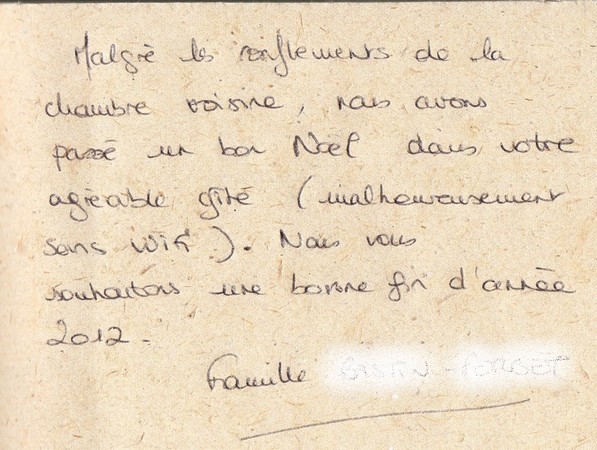 Malgré les ronflements de la
chambre voisine, nous avons
passé un bon Noël dans votre
agréable gîte (malheureusement
sans Wifi). Nous vous
souhaitons une bonne fin d'année
2012.
Famille